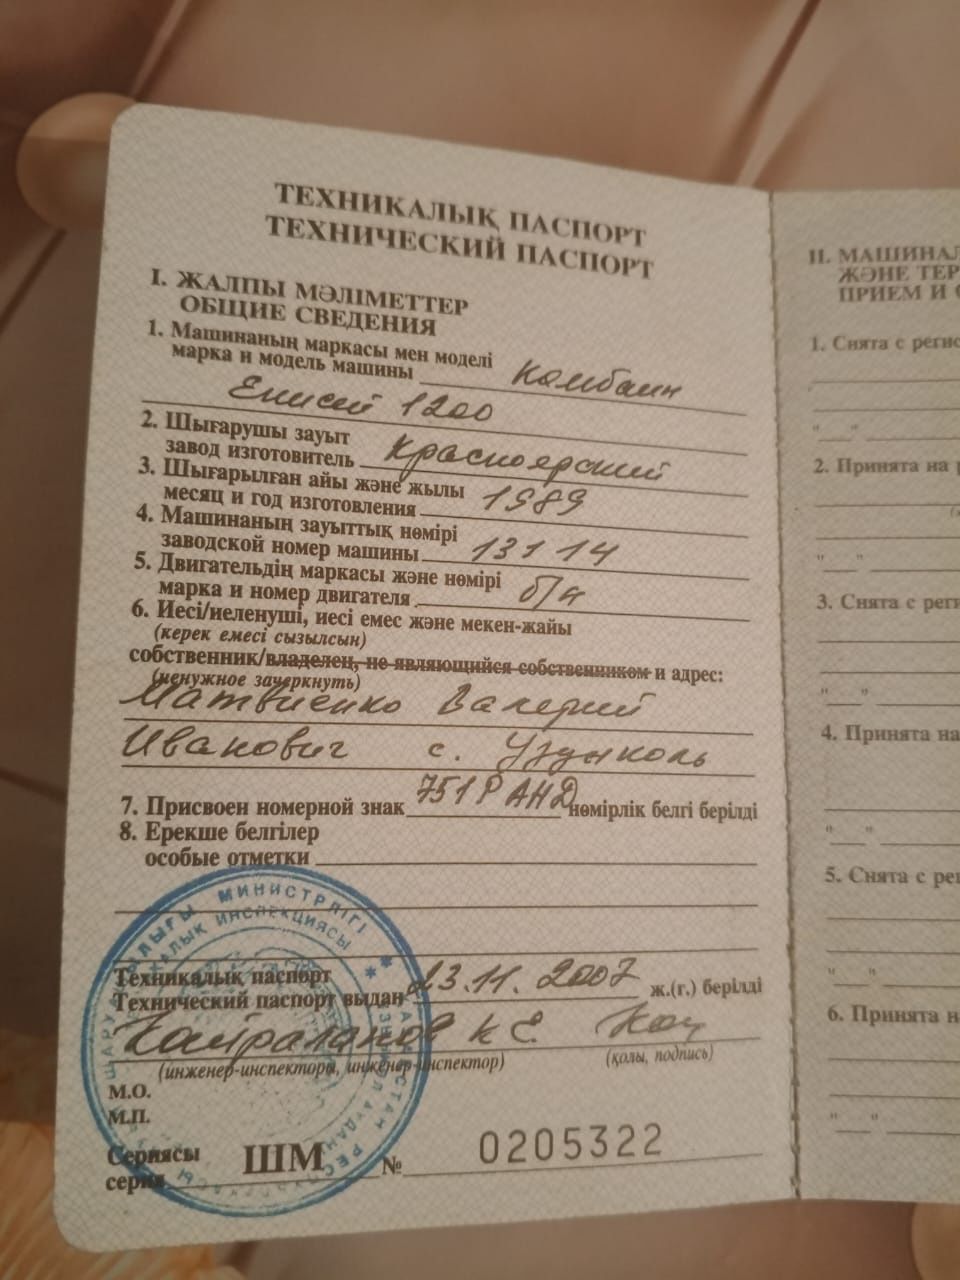 ТЕХНИКАЛЫҚ ПАСПОРТ
ТЕХНИЧЕСКИЙ ПАСПОРТ
I. ЖАЛПЫ МӘЛІМЕТТЕР
ОБЩИЕ СВЕДЕНИЯ
1. Машинаның маркасы мен моделі
марка и модель машины Комбаин
Енисей 1200
2. Шығарушы зауыт
завод изготовитель Красноярский
3. Шығарылған айы және жылы
месяц и год изготовления 1989
4. Машинаның зауыттық нөмірі
заводской номер машины 131114
5. Двигательдің маркасы және нөмірі
марка и номер двигателя б/н
6. Иесі/иеленуші, иесі емес және мекен-жайы
(керек емесі сызылсын)
собственник/владелец, не являющийся собственником и адрес:
(ненужное зачеркнуть)
Матвиенко Валерий
Иванович с. Узунколь
7. Присвоен номерной знак 751 Р АНД нөмірлік белгі берілді
8. Ерекше белгілер
особые отметки
Техникалық паспорт
Технический паспорт выдан 23.11.2007 ж.(г.) берілді
Кайралапов К Е
(инженер-инспекторы, инженер-инспектор) (қолы, подпись)
М.О.
М.П.
Сериясы
серия ШМ № 0205322
II. МАШИНАЛ
ЖӘНЕ ТЕР
ПРИЕМ И С
1. Снята с регис
2. Принята на р
3. Снята с реги
4. Принята на
5. Снята с рег
6. Принята н